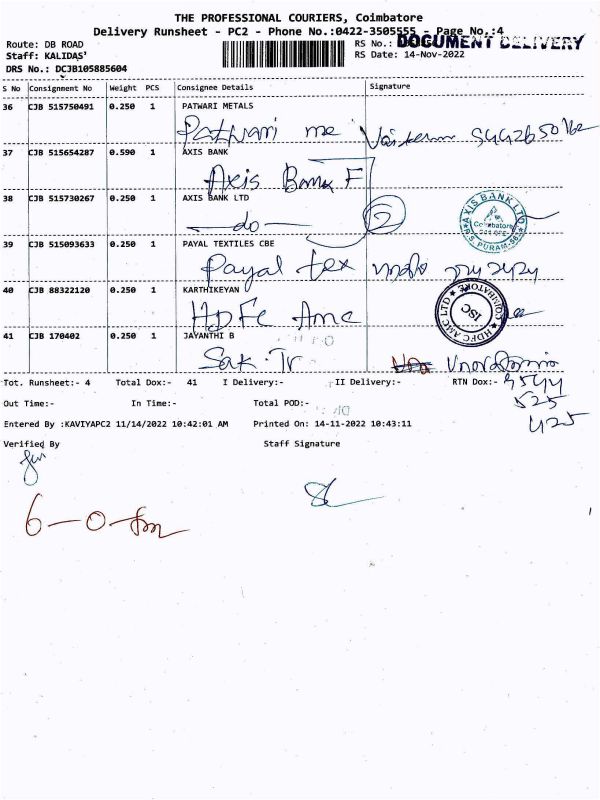 THE PROFESSIONAL COURIERS, Coimbatore
Delivery Runsheet - PC2 - Phone No.:0422-3505555 Page No.:4
Route: DB ROAD RS No.: DOCUMENT DELIVERY
Staff: KALIDAS' RS Date: 14-Nov-2022
DRS No.: DCJB105885604
S No Consignment No Weight PCS Consignee Details Signature
36 CJB 515750491 0.250 1 PATWARI METALS
Patwari me
37 CJB 515654287 0.590 1 AXIS BANK
Axis Bank F
38 CJB 515730267 0.250 1 AXIS BANK LTD
—do— 2
AXIS BANK LTD
Coimbatore
R.S. PURAM-
39 CJB 515093633 0.250 1 PAYAL TEXTILES CBE
Payal tex
40 CJB 88322120 0.250 1 KARTHIKEYAN
HDFC Amc
HDFC AMC LTD ★ COIMBATORE ★
ISC
41 CJB 170402 0.250 1 JAYANTHI B
Sak. Tr
Tot. Runsheet:- 4 Total Dox:- 41 I Delivery:- II Delivery:- RTN Dox:-
525
425
Out Time:- In Time:- Total POD:-
Entered By :KAVIYAPC2 11/14/2022 10:42:01 AM Printed On: 14-11-2022 10:43:11
Verified By Staff Signature